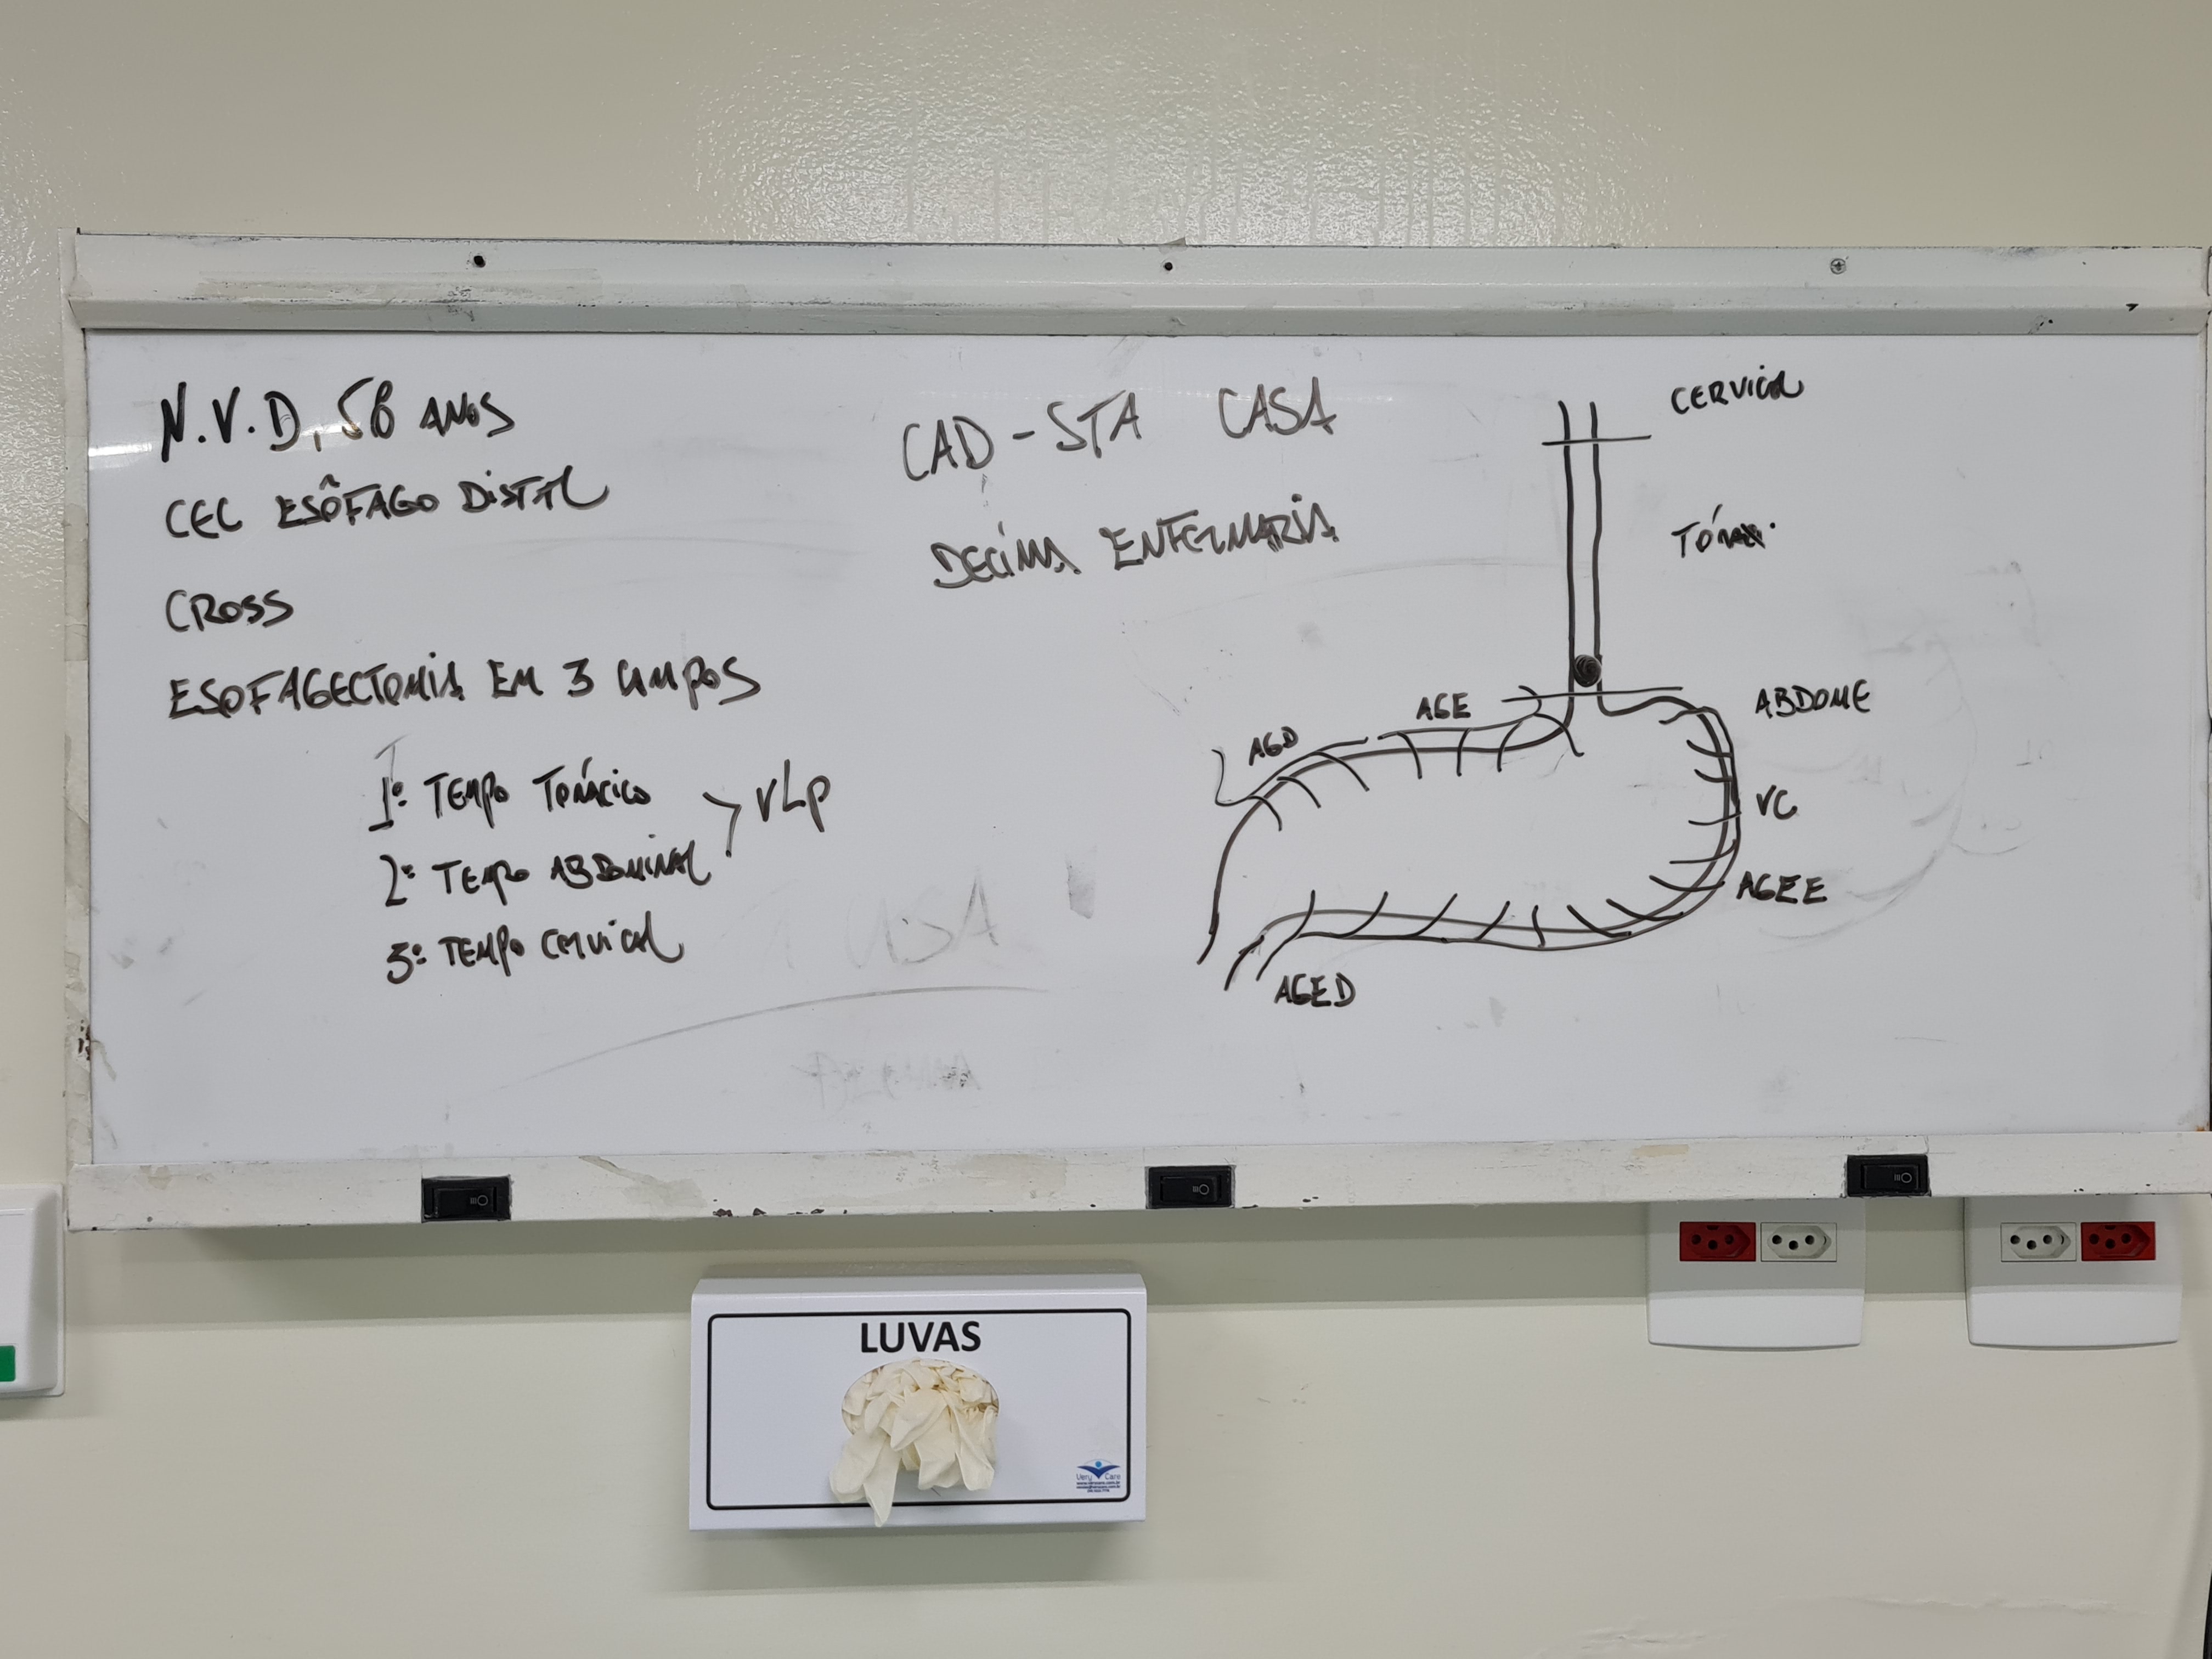 N.V.D, 58 ANOS
CEC ESÔFAGO DISTAL
CROSS
ESOFAGECTOMIA EM 3 CAMPOS
1º TEMPO TORÁCICO
2º TEMPO ABDOMINAL
VLP
3º TEMPO CERVICAL
CAD - STA CASA
DECIMA ENFERMARIA
CERVICAL
TÓRAX
ABDOME
AGE
AGD
VC
AGEE
AGED
LUVAS
Very Care